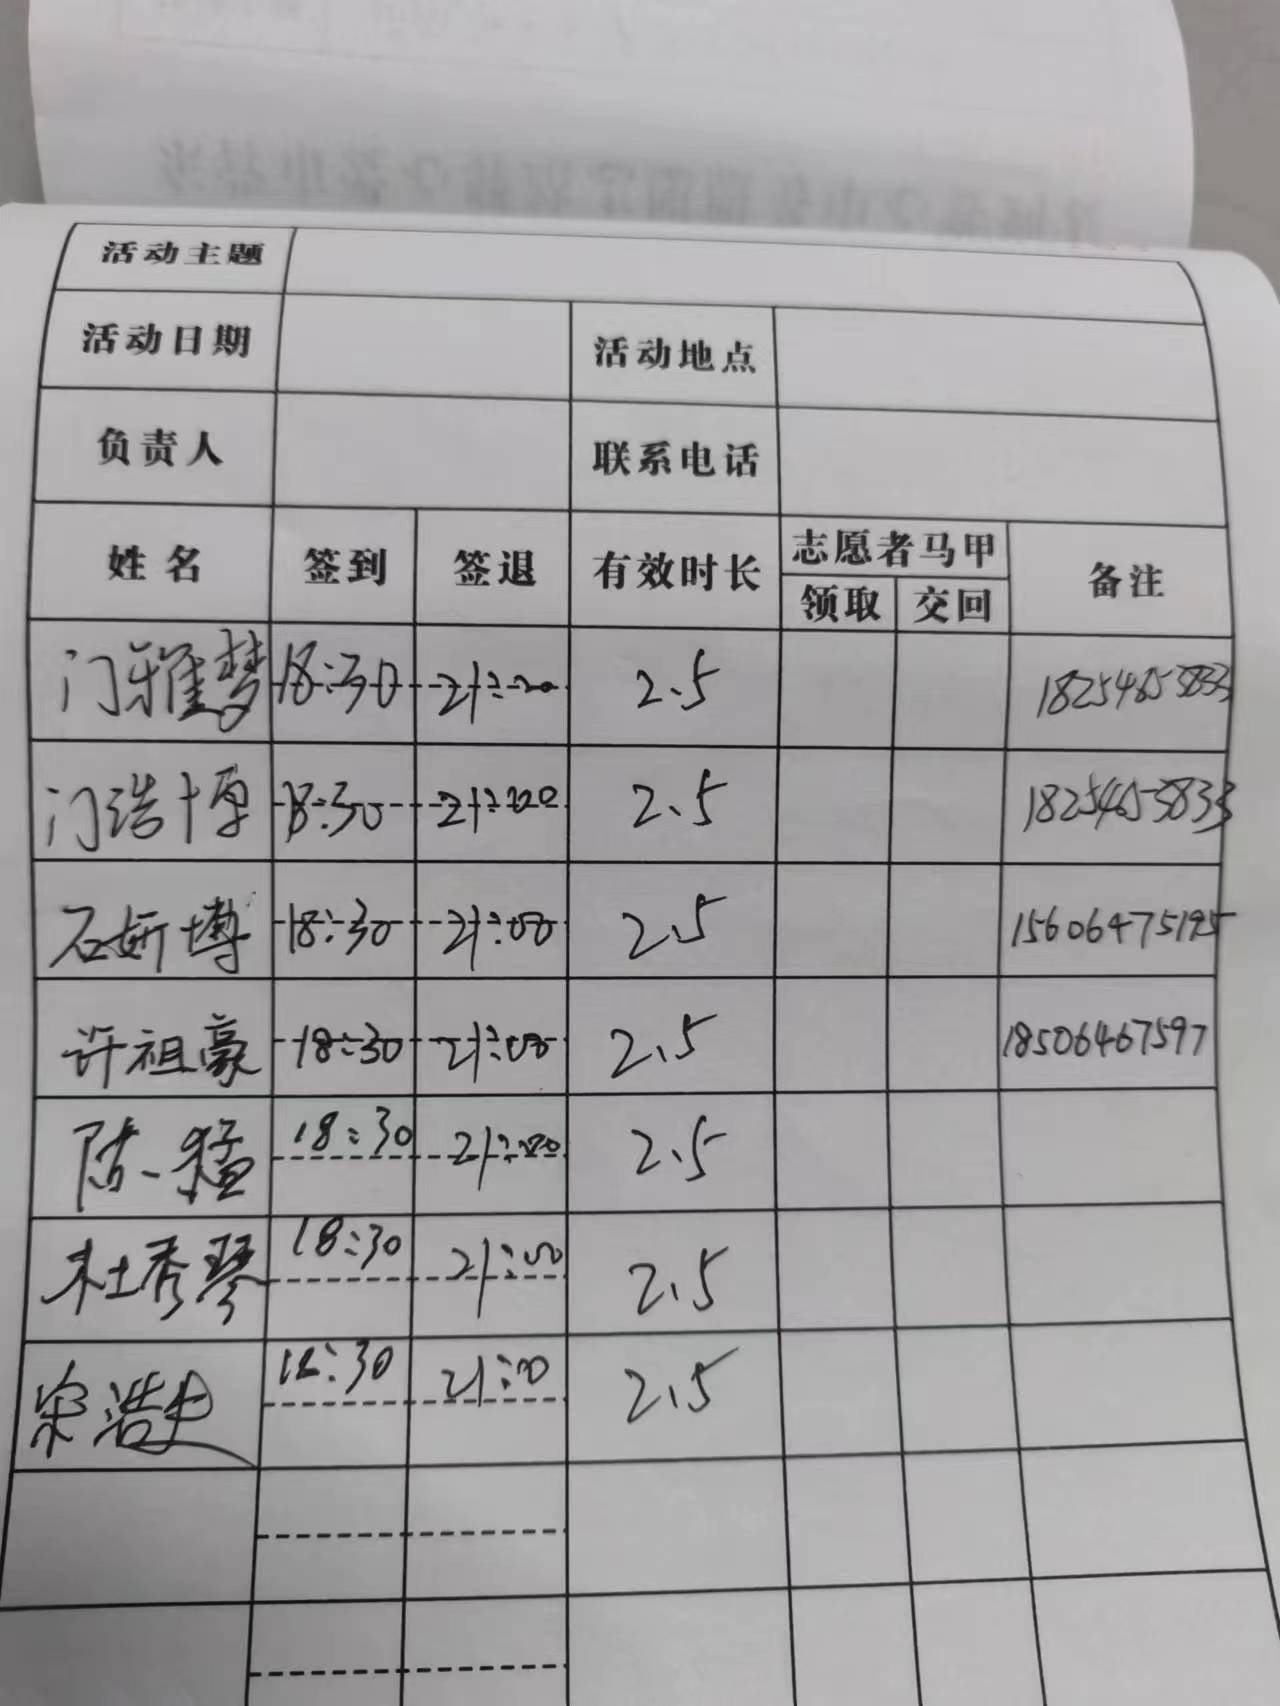 活动主题
活动日期 活动地点
负责人 联系电话
姓名 签到 签退 有效时长 志愿者马甲 备注
领取 交回
门雅梦 18:30 21:00 2.5 18254653833
门浩博 18:30 21:00 2.5 18254653833
石妍博 18:30 21:00 2.5 15606475195
许祖豪 18:30 21:00 2.5 18506467597
陈猛 18:30 21:00 2.5
杜秀琴 18:30 21:00 2.5
宋浩 18:30 21:00 2.5